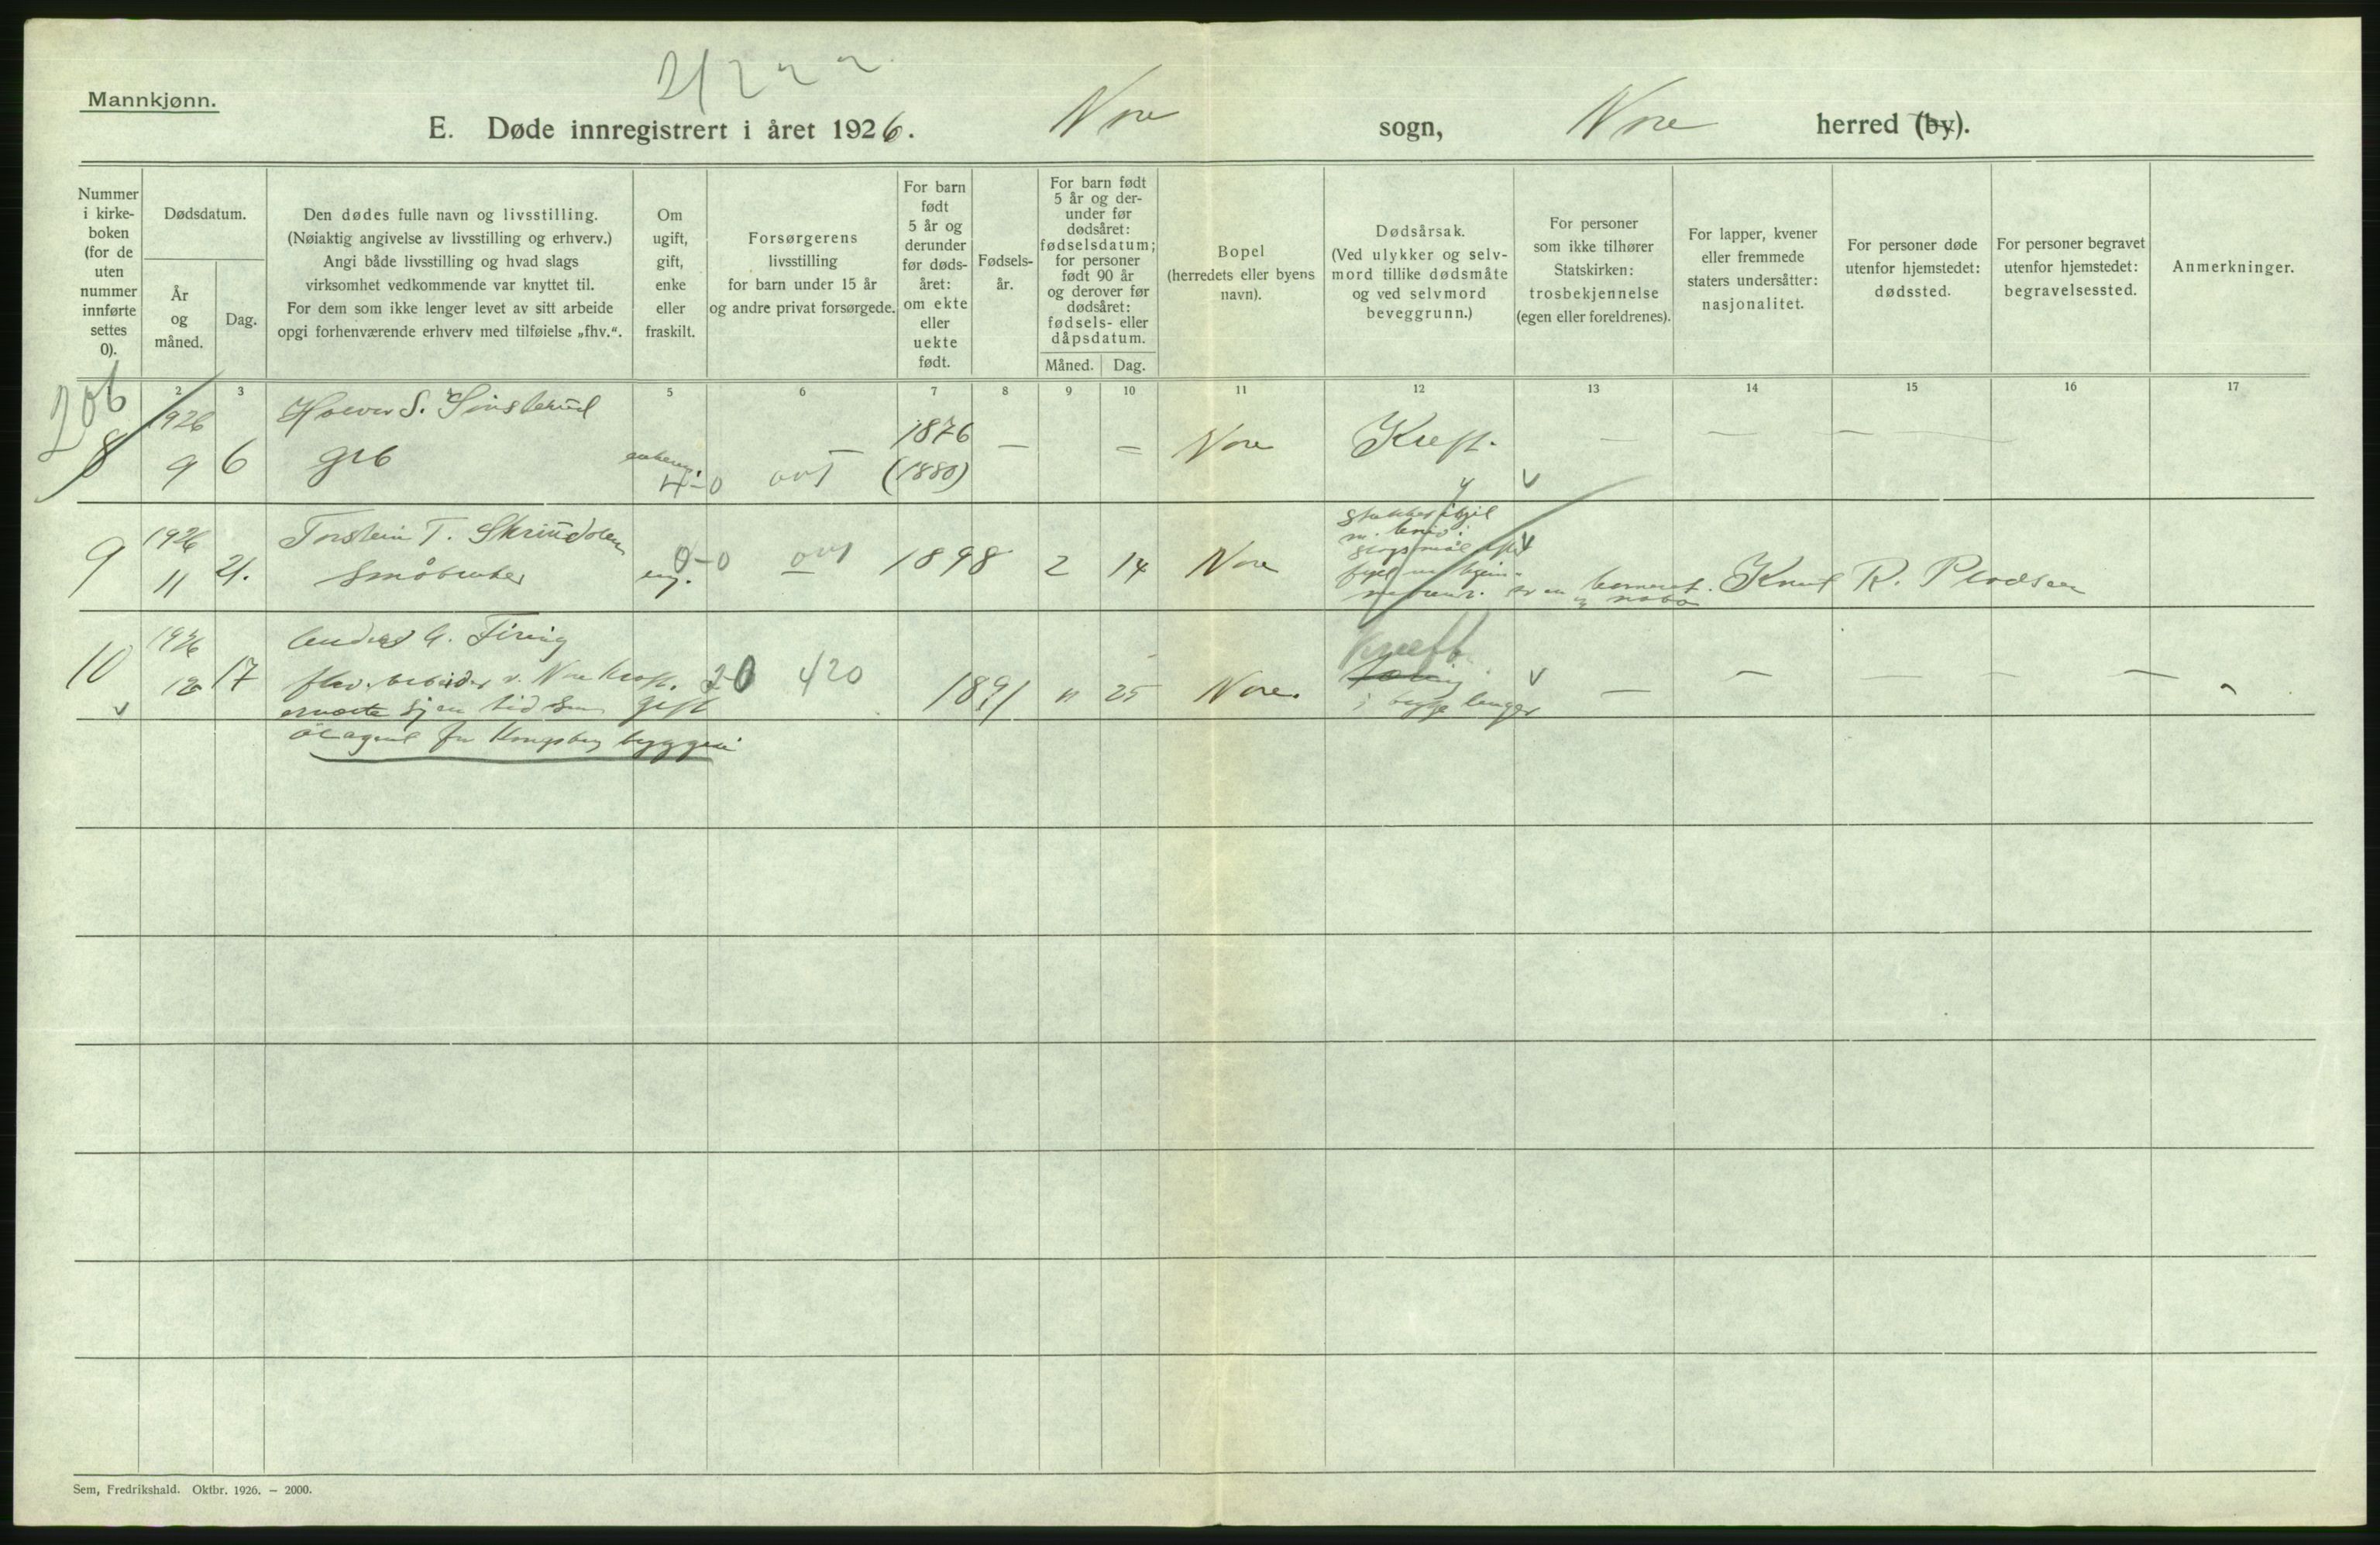 Mannkjønn.
E. Døde innregistrert i året 1926. Nore sogn, Nore herred (by).
Nummer i kirke- boken (for de uten nummer innførte settes 0).
Dødsdatum.
År og måned.
Dag.
Den dødes fulle navn og livsstilling.
(Nøiaktig angivelse av livsstilling og erhverv.)
Angi både livsstilling og hvad slags
virksomhet vedkommende var knyttet til.
For dem som ikke lenger levet av sitt arbeide
opgi forhenværende erhverv med tilføielse „fhv.“.
Om ugift, gift, enke eller fraskilt.
Forsørgerens
livsstilling
for barn under 15 år
og andre privat forsørgede.
For barn født 5 år og derunder før døds- året: om ekte eller uekte født.
Fødsels- år.
For barn født 5 år og der- under før dødsåret: fødselsdatum; for personer født 90 år og derover før dødsåret: fødsels- eller dåpsdatum.
Måned. Dag.
Bopel
(herredets eller byens
navn).
Dødsårsak.
(Ved ulykker og selv-
mord tillike dødsmåte
og ved selvmord
beveggrunn.)
For personer
som ikke tilhører
Statskirken:
trosbekjennelse
(egen eller foreldrenes).
For lapper, kvener
eller fremmede
staters undersåtter:
nasjonalitet.
For personer døde
utenfor hjemstedet:
dødssted.
For personer begravet
utenfor hjemstedet:
begravelsessted.
Anmerkninger.
2 3 5 6 7 8 9 10 11 12 13 14 15 16 17
206
8 1926 9 6
grb
4-0
1876
(1880)
— = Nore Kreft. — — —
9 1926 11 21.
Torstein T.
Småbruker
0-0 1898 2 14 Nore
Knut R.
10 1926 12 17
Anders
gift
20 420 1891 11 25 Nore.
Kreft
i begge lunger
— — — — —
Kongsberg bryggeri
Sem, Fredrikshald. Oktbr. 1926. — 2000.